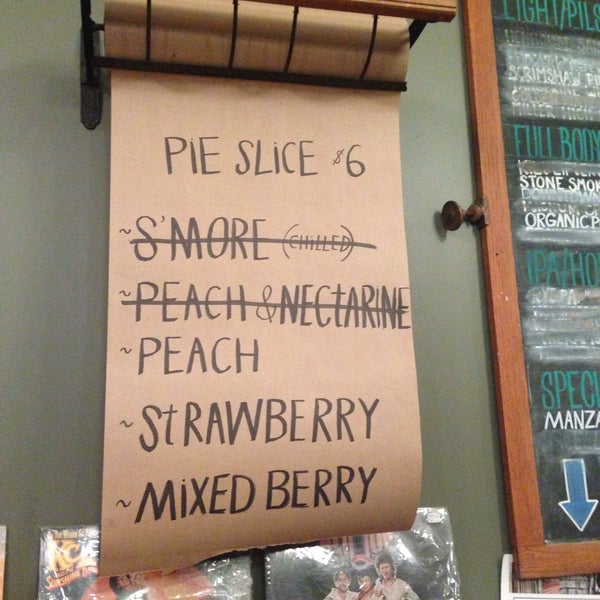 PiE SLiCE $6
~S'MORE (CHiLLED)
~PEACH & NECtARiNE
~PEACH
~StRAWBERRY
~MiXED BERRY
LIGHT/PILS
SCRIMSHAW PIL
FULL BODY
STONE SMOK
ORGANIC P
IPA/HO
SPECI
MANZA